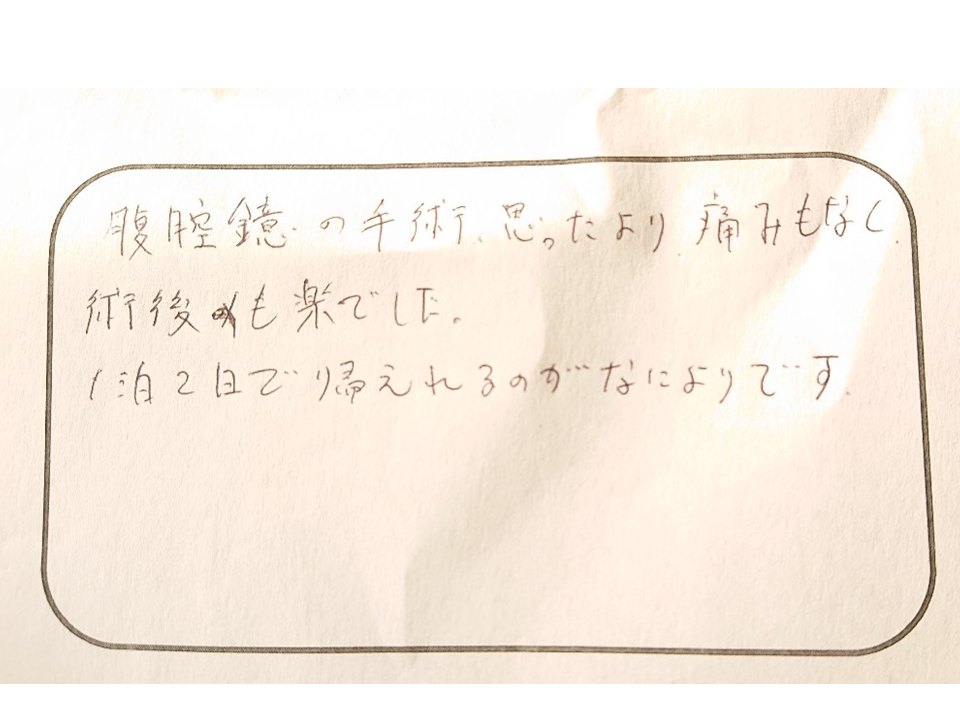 腹腔鏡の手術、思ったより痛みもなく、
術後も楽でした。
1泊2日で帰えれるのがなによりです。